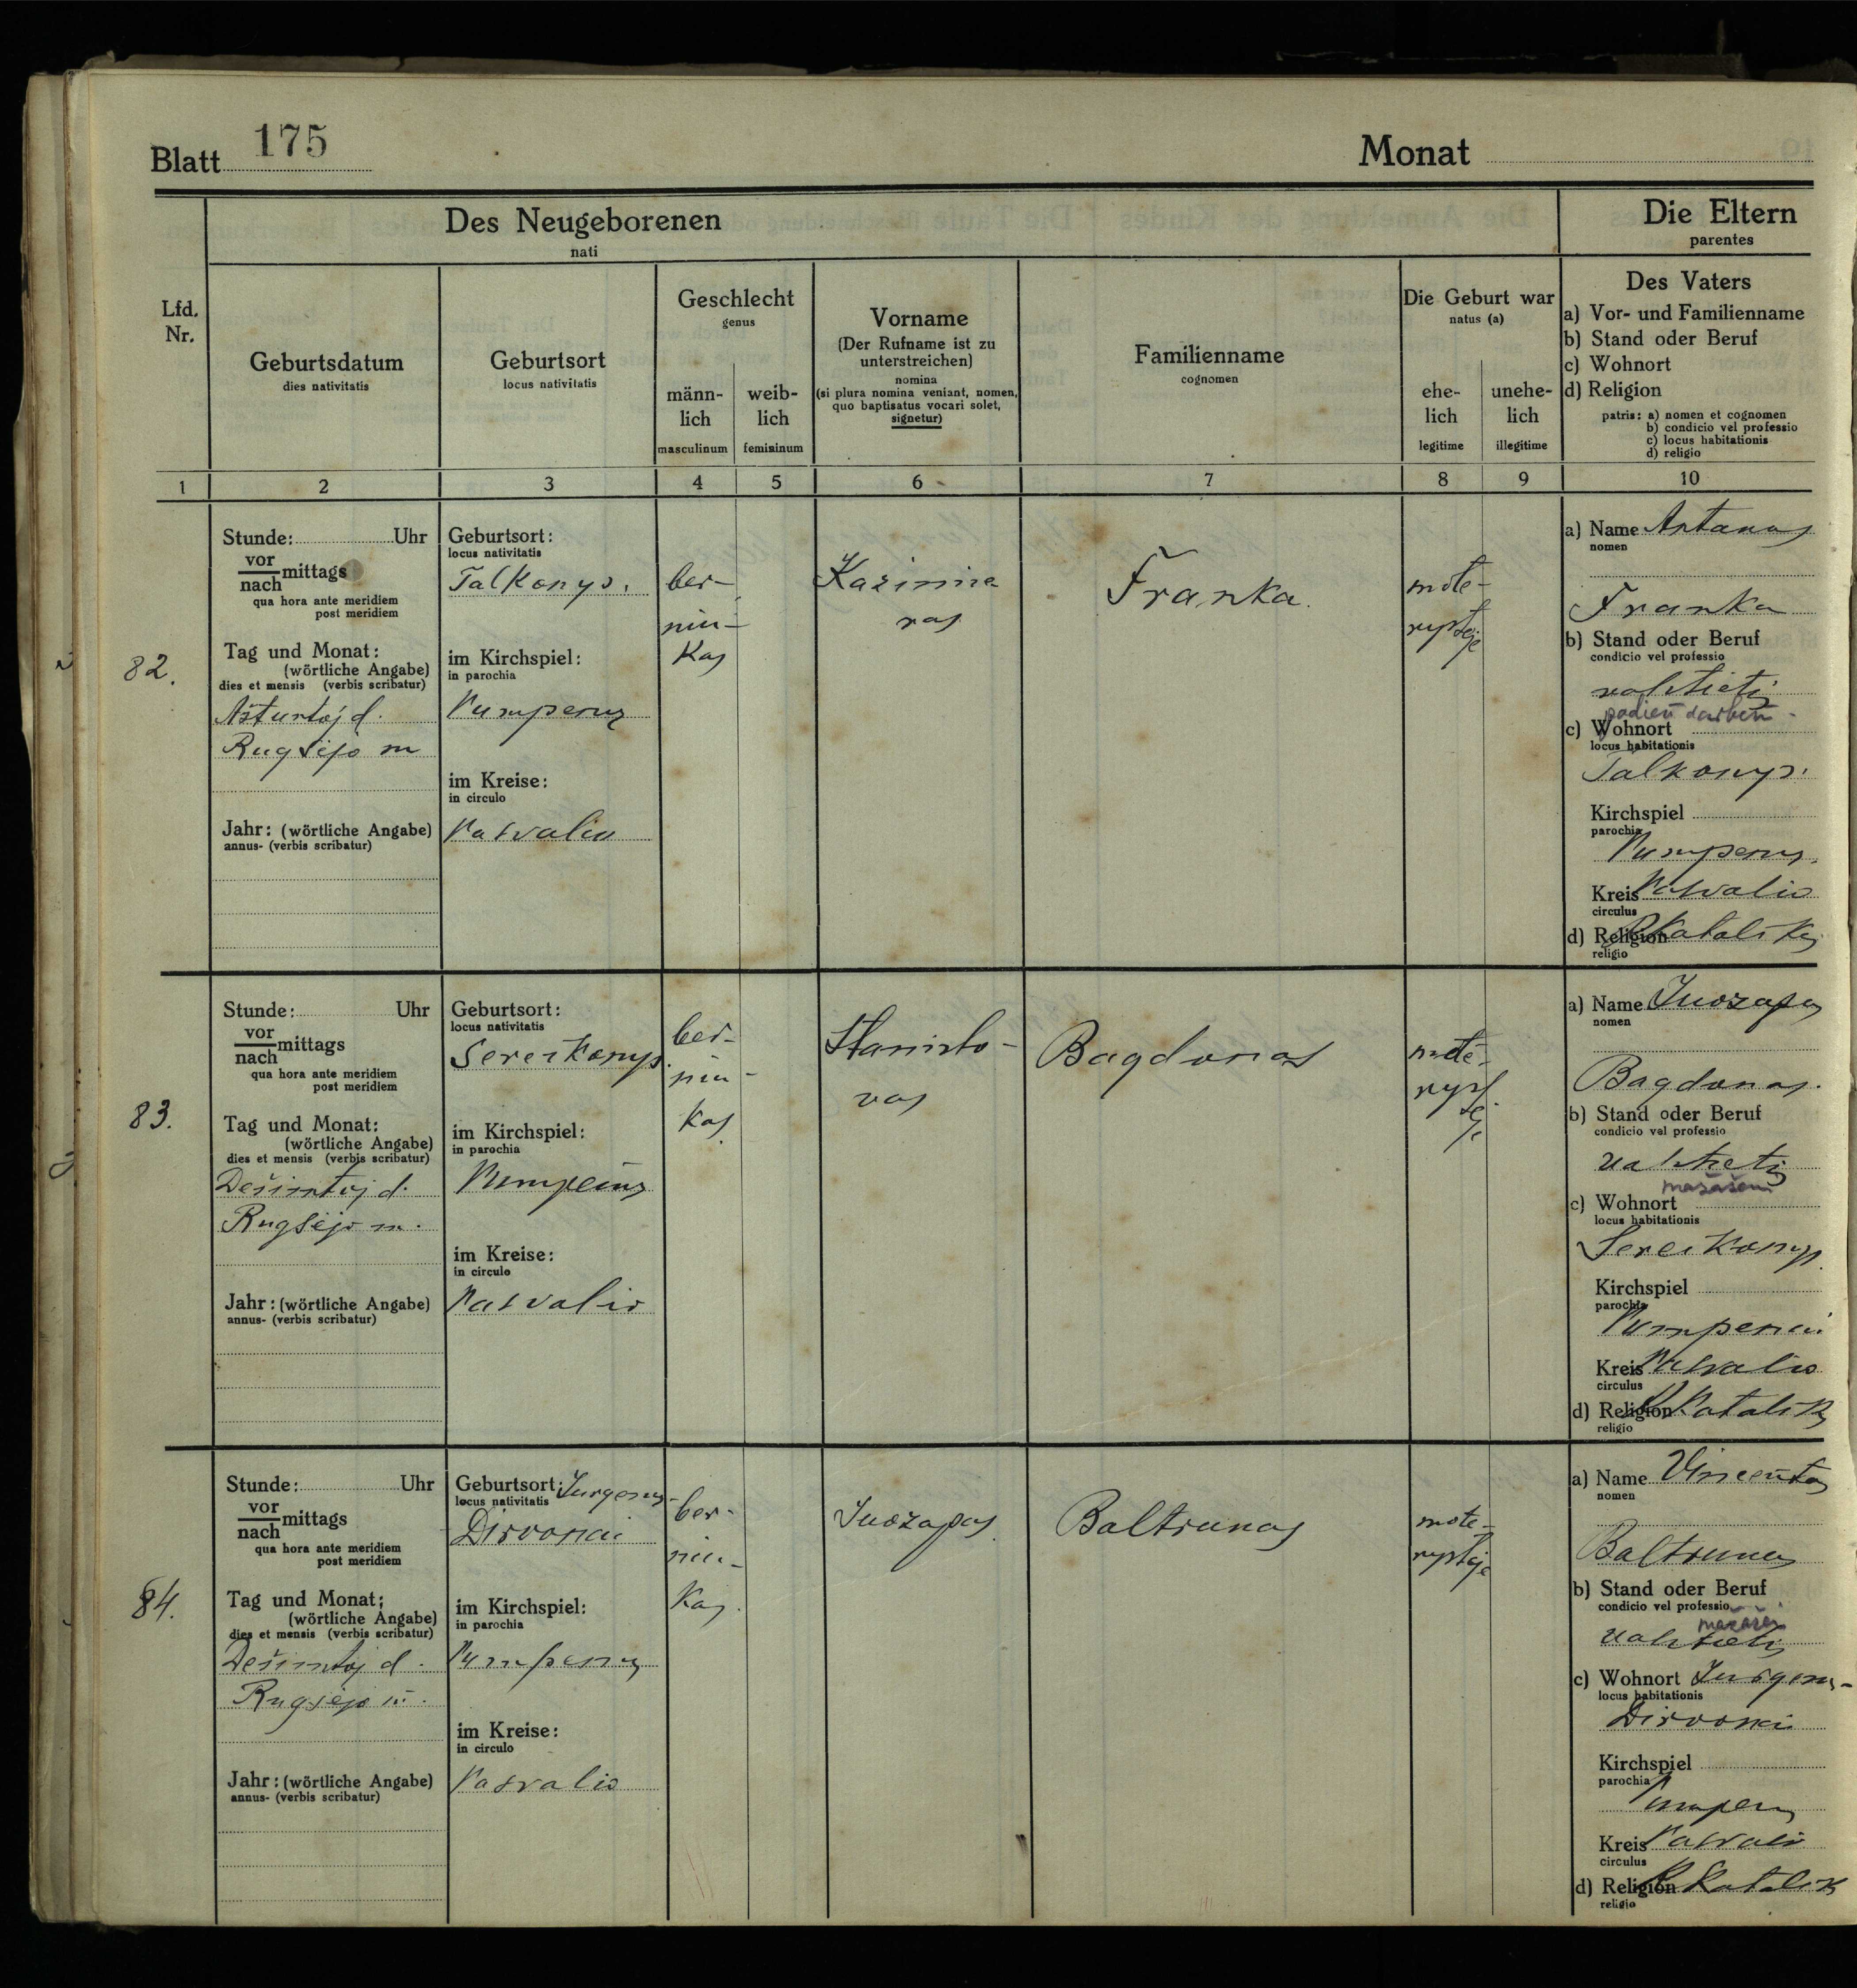 Blatt 175
Monat
Des Neugeborenen
nati
Die Eltern
parentes
Lfd.
Nr.
Geburtsdatum
dies nativitatis
Geburtsort
locus nativitatis
Geschlecht
genus
männ-
lich
masculinum
weib-
lich
femininum
Vorname
(Der Rufname ist zu
unterstreichen)
nomina
(si plura nomina veniant, nomen,
quo baptisatus vocari solet,
signetur)
Familienname
cognomen
Die Geburt war
natus (a)
ehe-
lich
legitime
unehe-
lich
illegitime
Des Vaters
a) Vor- und Familienname
b) Stand oder Beruf
c) Wohnort
d) Religion
patris: a) nomen et cognomen
b) condicio vel professio
c) locus habitationis
d) religio
1 2 3 4 5 6 7 8 9 10
82.
Stunde: Uhr
vor
nach mittags
qua hora ante meridiem
post meridiem
Tag und Monat:
(wörtliche Angabe)
dies et mensis (verbis scribatur)
Aštuntoj d.
Rugsėjo m
Jahr: (wörtliche Angabe)
annus- (verbis scribatur)
Geburtsort:
locus nativitatis
Talkonys.
im Kirchspiel:
in parochia
Pumpenų
im Kreise:
in circulo
Pasvalio
ber-
niu-
kas
Kazimie
ras
Franka.
mote-
rystėje
a) Name Antanas
nomen
Franka
b) Stand oder Beruf
condicio vel professio
valstietis
padien darbin
c) Wohnort
locus habitationis
Talkonys.
Kirchspiel
parochia
Pumpenų.
Kreis Pasvalio
circulus
d) Religion R Katalikų
religio
83.
Stunde: Uhr
vor
nach mittags
qua hora ante meridiem
post meridiem
Tag und Monat:
(wörtliche Angabe)
dies et mensis (verbis scribatur)
Dešimtoj d.
Rugsėjo m.
Jahr: (wörtliche Angabe)
annus- (verbis scribatur)
Geburtsort:
locus nativitatis
Sereikonys.
im Kirchspiel:
in parochia
Pumpėnų
im Kreise:
in circulo
Pasvalio
ber-
niu-
kas
Stanislo-
vas
Bagdonas
mote-
ryst
ėje
a) Name Juozapas
nomen
Bagdonas.
b) Stand oder Beruf
condicio vel professio
valstietis
mažažem
c) Wohnort
locus habitationis
Sereikonys.
Kirchspiel
parochia
Pumpenai
Kreis Pasvalio
circulus
d) Religion R Katalikų
religio
84.
Stunde: Uhr
vor
nach mittags
qua hora ante meridiem
post meridiem
Tag und Monat:
(wörtliche Angabe)
dies et mensis (verbis scribatur)
Dešimtoj d.
Rugsėjo m.
Jahr: (wörtliche Angabe)
annus- (verbis scribatur)
Geburtsort: Jurgėnų-
locus nativitatis
Dirvonai
im Kirchspiel:
in parochia
Pumpenų
im Kreise:
in circulo
Pasvalio
ber-
niu-
kas.
Juozapas
Baltrunas
mote-
rystėje
a) Name Vincentas
nomen
Baltrunas
b) Stand oder Beruf
condicio vel professio
mažaž
valstietis
c) Wohnort Jurgėnų-
locus habitationis
Dirvonai
Kirchspiel
parochia
Pumpenų
Kreis Pasvalio
circulus
d) Religion R Katalik
religio